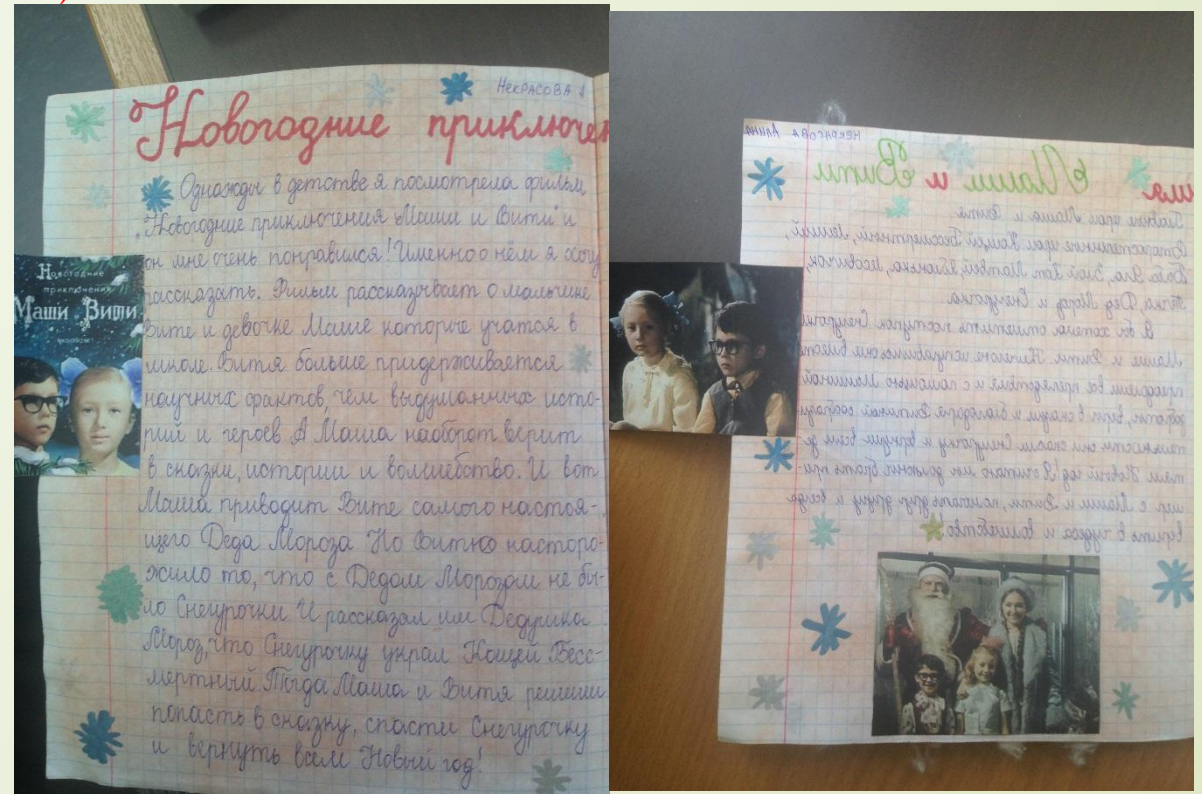 Некрасова А
Новогодние приключен
Однажды в детстве я посмотрела фильм
"Новогодние приключения Маши и Вити" и
он мне очень понравился! Именно о нём я хочу
рассказать. Фильм рассказывает о мальчике
Вите и девочке Маше которые учатся в
школе. Витя больше придерживается
научных фактов, чем выдуманных исто-
рий и героев. А Маша наоборот верит
в сказки, истории и волшебство. И вот
Маша приводит Вите самого настоя-
щего Деда Мороза. Но Витю насторо-
жило то, что с Дедом Морозом не бы-
ло Снегурочки. И рассказал им Дедушка
Мороз, что Снегурочку украл Кощей Бесс-
мертный. Тогда Маша и Витя решили
попасть в сказку, спасти Снегурочку
и вернуть всем Новый год!
Новогодние
приключения
Маши и Вити
Некрасова Алина
ия Маши и Вити
Главные герои Маша и Витя.
Второстепенные герои: Кощей Бессмертный, Леший,
Баба Яга, Дикий Кот Матвей, Яблонька, Лесовичок,
Печка, Дед Мороз и Снегурочка.
Я бы хотела отметить поступок Снегурочки
Маши и Вити. Ничего не испугавшись они вместе
преодолели все препятствия и с помощью Машиной
доброты, веры в сказки и благодаря Витиной сообрази-
тельности они спасли Снегурочку и вернули всем де-
тям Новый год! Я считаю мы должны брать при-
мер с Маши и Вити, помогать друг другу и всегда
верить в чудеса и волшебство.